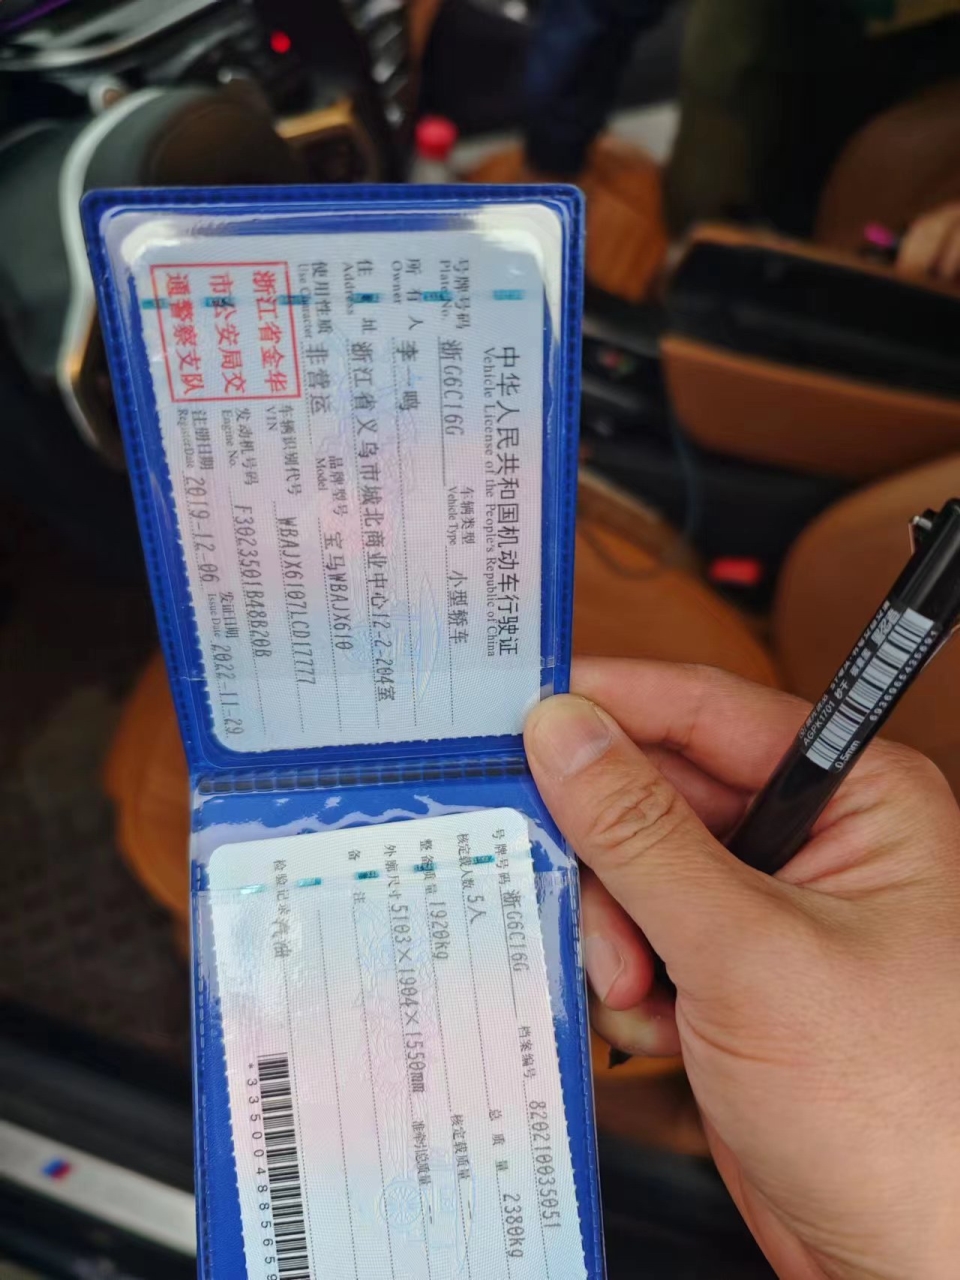 中华人民共和国机动车行驶证
Vehicle License of the People's Republic of China
号牌号码 浙G6C16G 车辆类型 小型轿车
Plate No. Vehicle Type
所有人 李一鸣
Owner
住址 浙江省义乌市城北商业中心12-2-204室
Address
使用性质 非营运 品牌型号 宝马WBAJX610
Use Character Model
浙江省金华
市公安局交
通警察支队
车辆识别代号 WBAJX6107LCD17777
VIN
发动机号码 F3023501B48B20B
Engine No.
注册日期 2019-12-06 发证日期 2022-11-29
Register Date Issue Date
号牌号码 浙G6C16G 档案编号 820210035051
核定载人数 5人 总质量 2380kg
整备质量 1920kg 核定载质量 --
外廓尺寸 5103×1904×1550mm 准牵引总质量 --
备注
检验记录 汽油
*335004885659
0.5mm